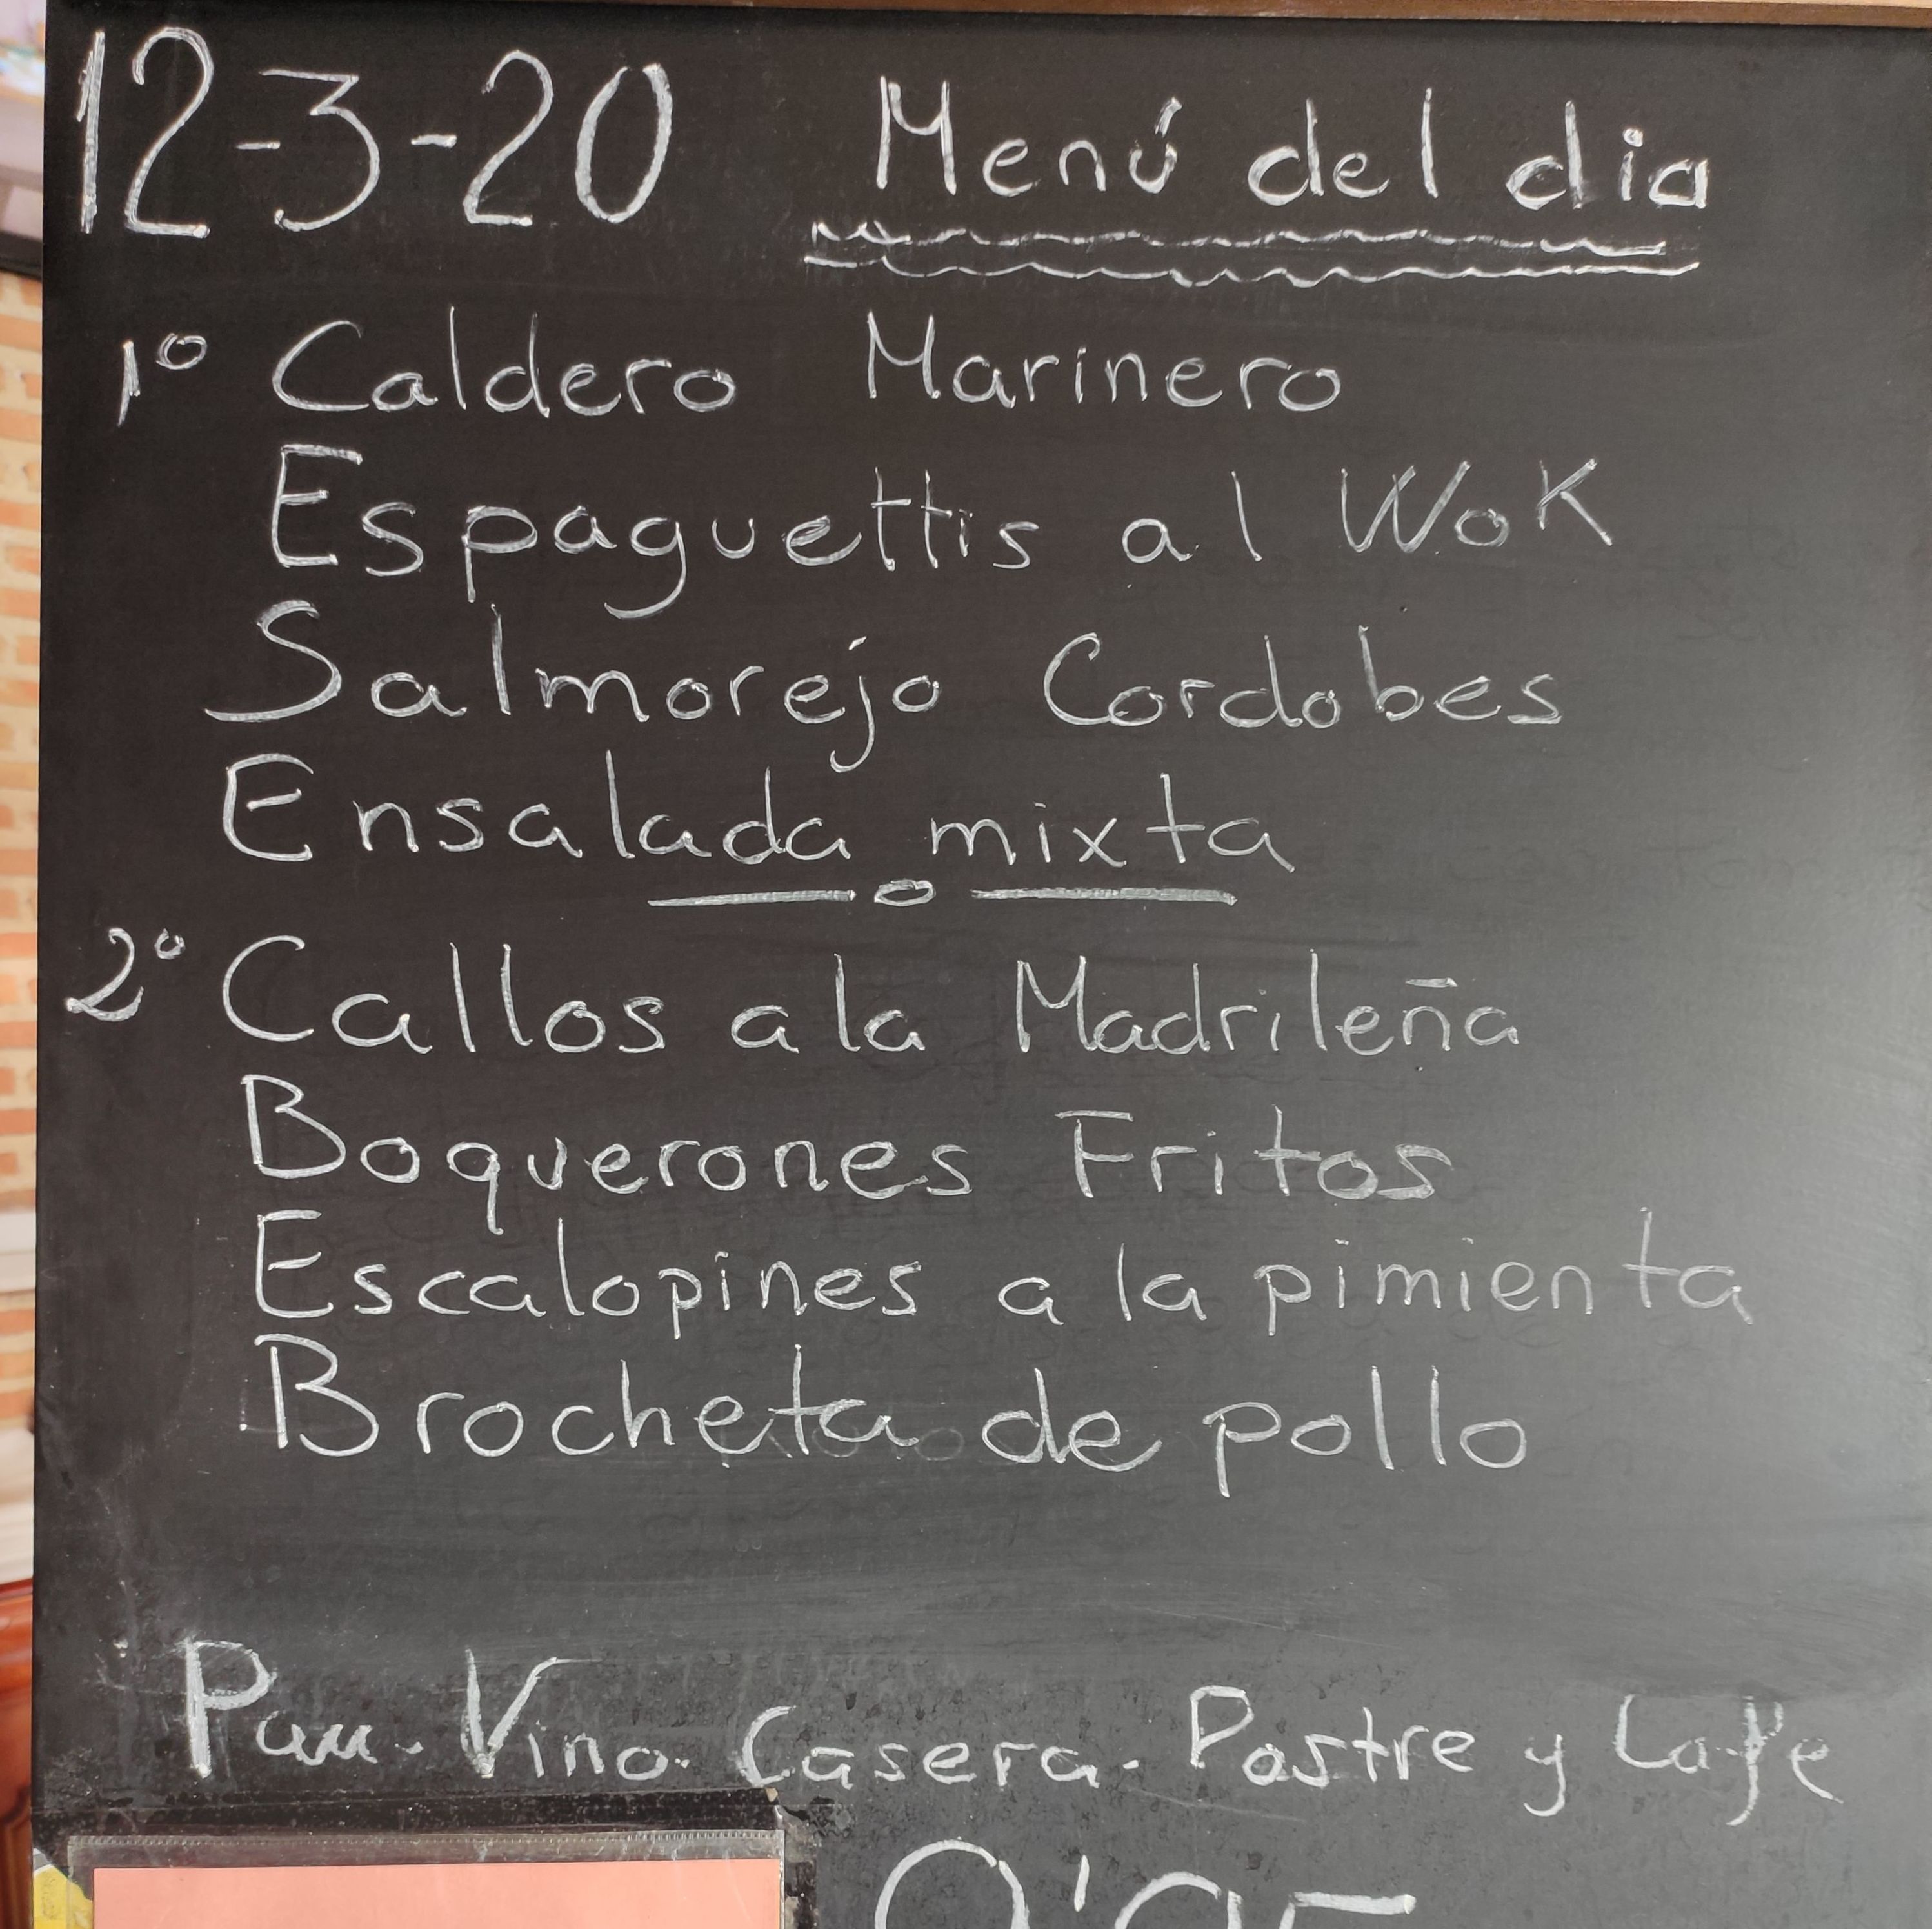 12-3-20 Menú del dia
1º Caldero Marinero
Espaguettis al Wok
Salmorejo Cordobes
Ensalada mixta
2º Callos a la Madrileña
Boquerones Fritos
Escalopines a la pimienta
Brocheta de pollo
Pan. Vino. Casera. Postre y Cafe